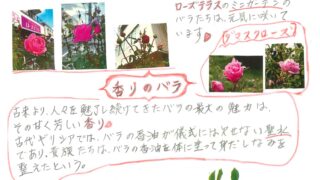 ローズテラスのミニガーデンの
バラたちは、元気に咲いて
います。
ダマスクローズ
香りのバラ
古来より、人々を魅了し続けてきたバラの最大の魅力は、
その甘く芳しい香り。
古代ギリシアでは、バラの香油が儀式にはかせない聖水
であり、貴族たちは、バラの香油を体に塗って身だしなみを
整えたという。